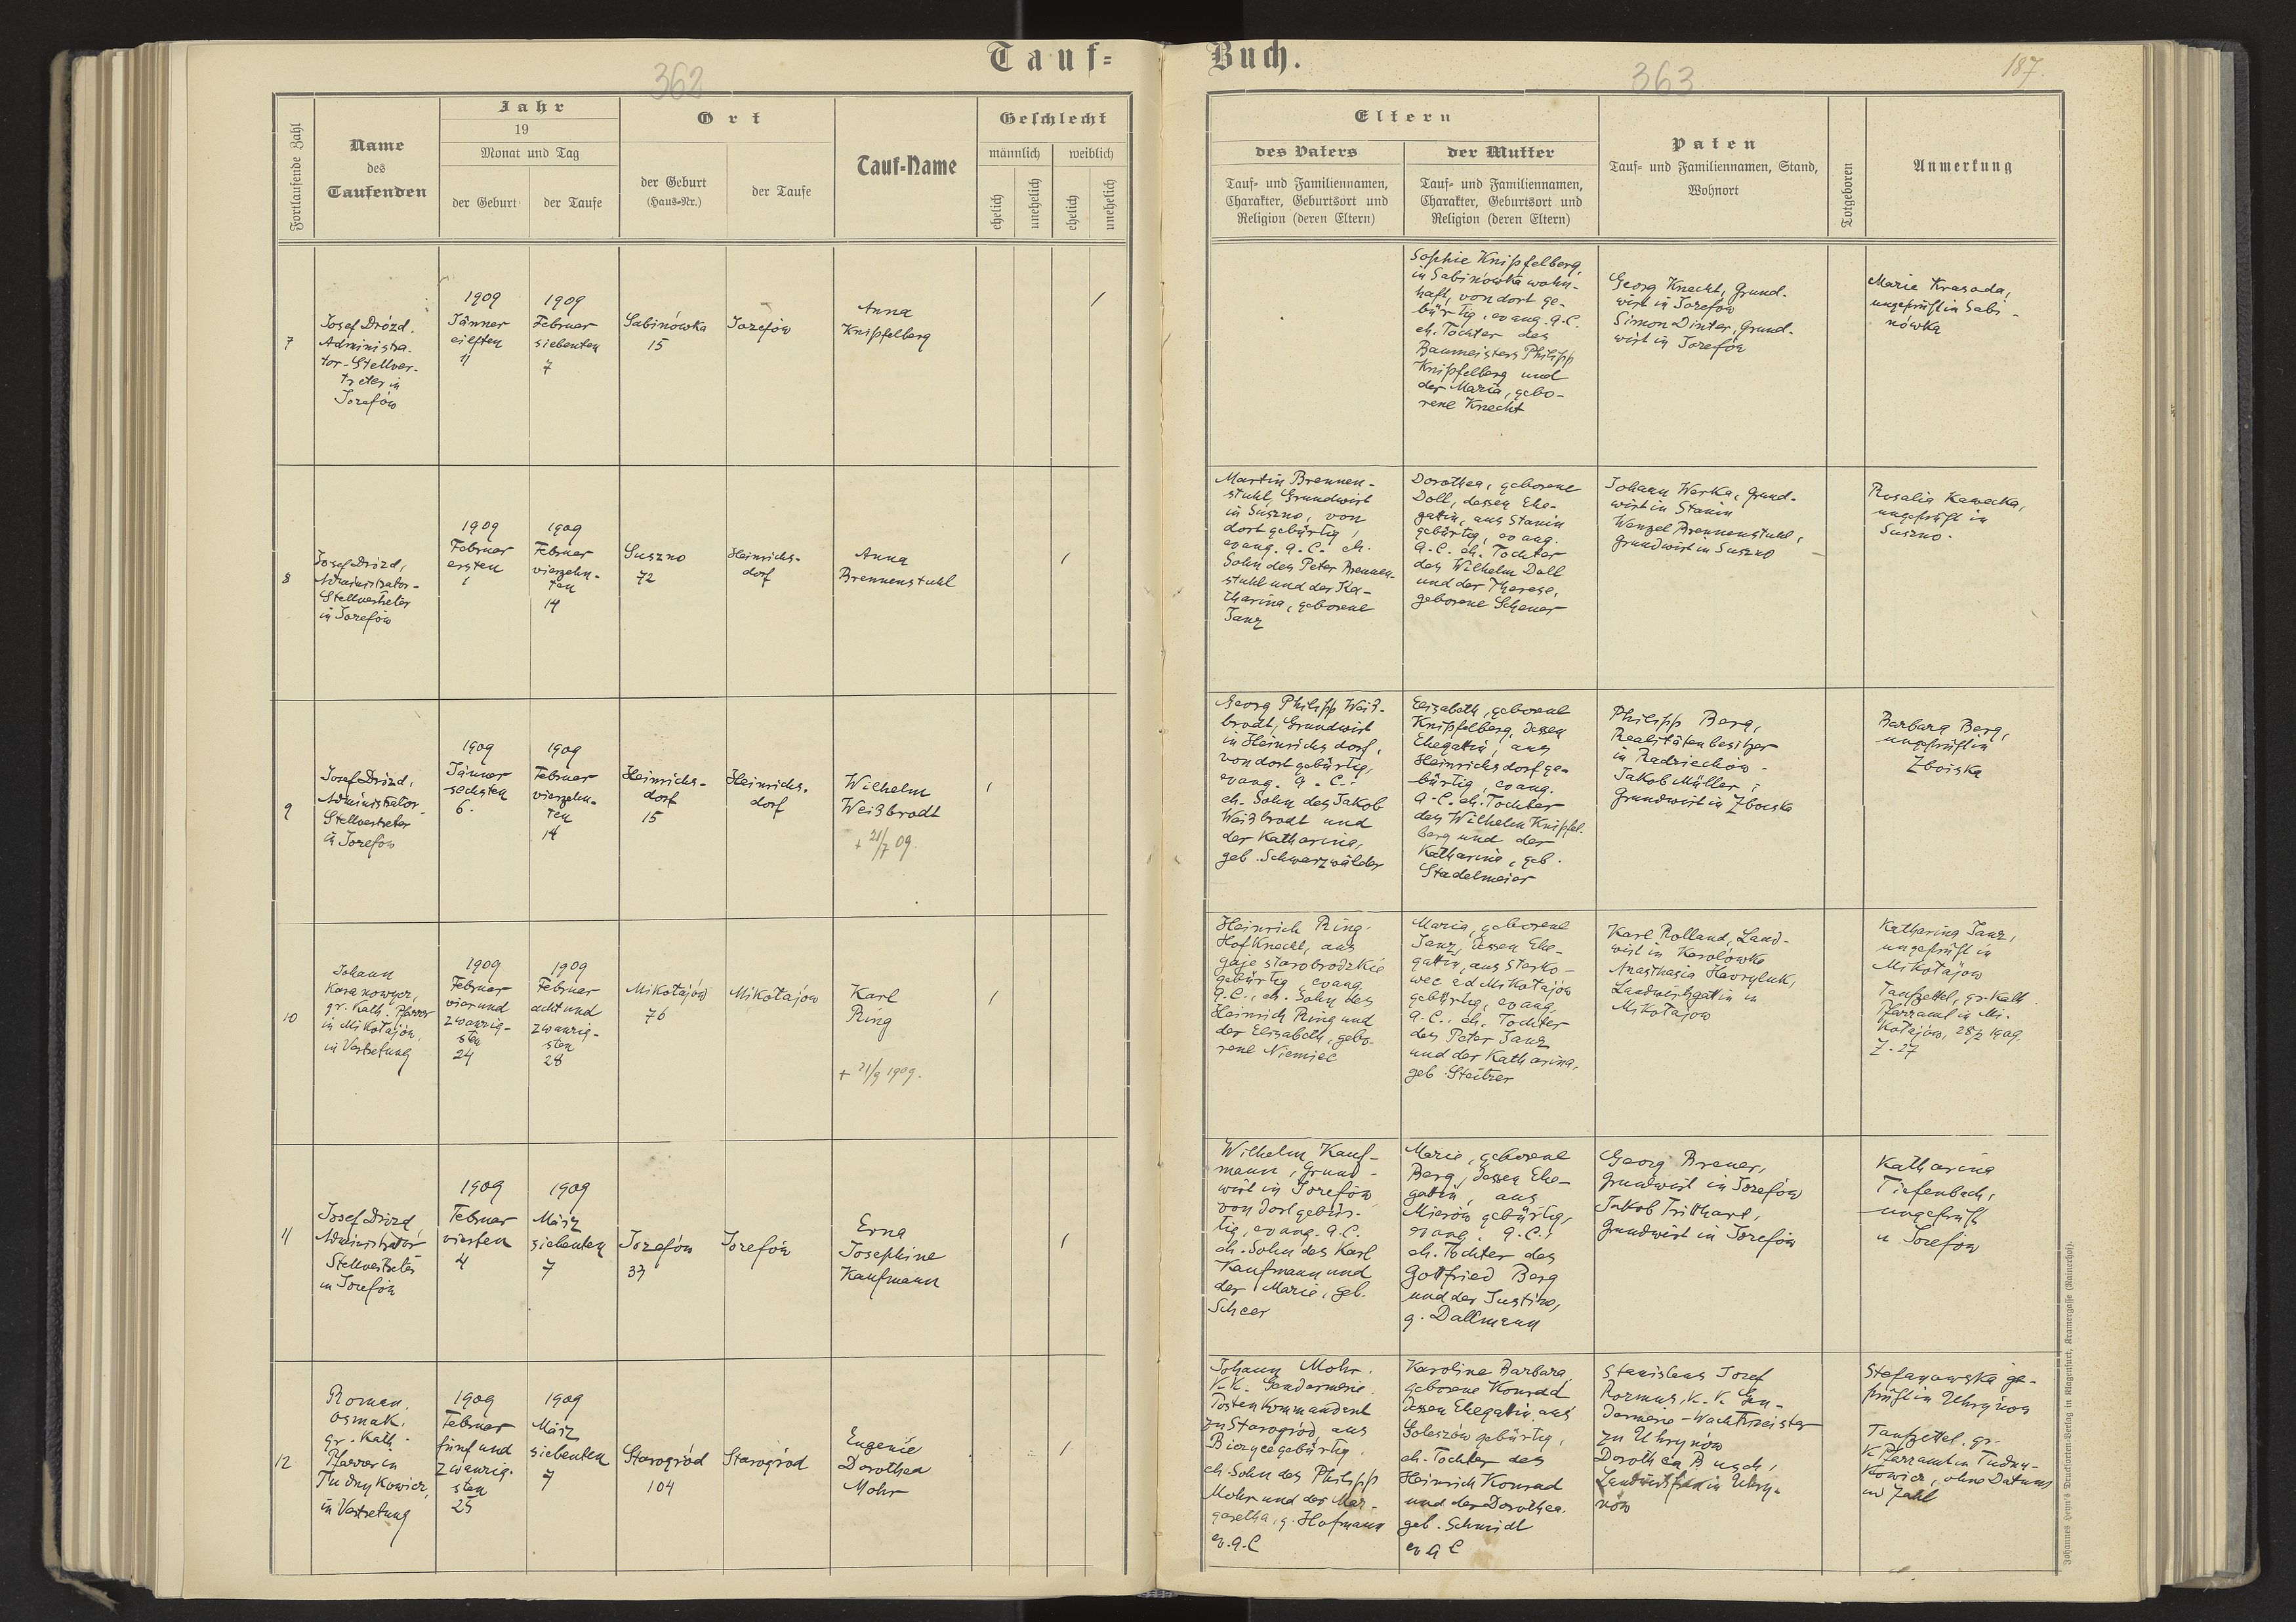 Tauf=
Buch.
362
363
187.
Fortlaufende Zahl
Name
des
Taufenden
Jahr
19
Monat und Tag
der Geburt
der Taufe
Ort
der Geburt
(Haus=Nr.)
der Taufe
Tauf=Name
Geschlecht
männlich
weiblich
ehelich
unehelich
ehelich
unehelich
Eltern
des Vaters
Tauf= und Familiennamen,
Charakter, Geburtsort und
Religion (deren Eltern)
der Mutter
Tauf= und Familiennamen,
Charakter, Geburtsort und
Religion (deren Eltern)
Paten
Tauf= und Familiennamen, Stand,
Wohnort
Totgeboren
Anmerkung
7
Josef Drózd,
Administra-
tor-Stellver-
treter in
Józefów
1909
Jänner
eilften
11
1909
Februar
siebenten
7
Sabinówka
15
Józefów
Anna
Knipfelberg
/
Sophie Knipfelberg,
in Sabinówka wohn-
haft, von dort ge-
bürtig, evang. A.C.
eh. Tochter des
Baumeisters Philipp
Knipfelberg und
der Maria, gebo-
rene Knecht
Georg Knecht, Grund-
wirt in Józefów
Simon Dinter, Grund-
wirt in Józefów
Marie Krasada,
ungeprüft in Sabi-
nówka
8
Josef Drózd,
Administrator-
Stellvertreter
in Józefów
1909
Februar
ersten
1
1909
Februar
vierzehn-
ten
14
Suszno
72
Heinrichs-
dorf
Anna
Brennenstuhl
/
Martin Brennen-
stuhl, Grundwirt
in Suszno, von
dort gebürtig,
evang. A.C. eh.
Sohn des Peter Brennen-
stuhl und der Ka-
tharina, geborene
Janz
Dorothea, geborene
Doll, dessen Ehe-
gattin, aus Stanin
gebürtig, evang.
A.C. eh. Tochter
des Wilhelm Doll
und der Therese,
geborene Scheuer
Johann Warka, Grund-
wirt in Stanin
Wenzel Brennenstuhl,
Grundwirt in Suszno
Rosalia Kawecka,
ungeprüft in
Suszno.
9
Josef Drózd,
Administrator
Stellvertreter
in Józefów
1909
Jänner
sechsten
6.
1909
Februar
vierzehn-
ten
14
Heinrichs-
dorf
15
Heinrichs-
dorf
Wilhelm
Weißbrodt
+ 21/7 09.
/
Georg Philipp Weiß-
brodt, Grundwirt
in Heinrichsdorf,
von dort gebürtig,
evang. A.C.,
eh. Sohn des Jakob
Weißbrodt und
der Katharina,
geb. Schwarzwälder
Elizabeth, geborene
Knipfelberg, dessen
Ehegattin, aus
Heinrichsdorf ge-
bürtig, evang.
A.C. eh. Tochter
des Wilhelm Knipfel-
berg und der
Katharina, geb.
Stadelmeier
Philipp Berg,
Realitätenbesitzer
in Radziechów
Jakob Müller,
Grundwirt in Zboiska
Barbara Berg,
ungeprüft in
Zboiska
10
Johann
Karanowycz,
gr. kath. Pfarrer
in Mikołajów,
in Vertretung
1909
Februar
vierund
zwanzig-
sten
24
1909
Februar
achtund
zwanzig-
sten
28
Mikołajów
76
Mikołajów
Karl
Ring
+ 21/9 1909.
/
Heinrich Ring,
Hofknecht, aus
Gaje starobrodzkie
gebürtig, evang.
A.C., eh. Sohn des
Heinrich Ring und
der Elizabeth, gebo-
rene Niemiec
Maria, geborene
Janz, dessen Ehe-
gattin, aus Stasko-
wec ad Mikołajów
gebürtig, evang.
A.C., eh. Tochter
des Peter Janz
und der Katharina,
geb. Steitzer
Karl Rolland, Land-
wirt in Karolówka
Anasthasia Havryluk,
Landwirtsgattin in
Mikołajów
Katharina Janz,
ungeprüft in
Mikołajów
Taufzettel, gr. kath.
Pfarramt in Mi-
kołajów, 28/2 1909.
Z. 27
11
Josef Drózd,
Administrator
Stellvertreter
in Józefów
1909
Februar
vierten
4
1909
März
siebenten
7
Józefów
33
Józefów
Erna
Josephine
Kaufmann
/
Wilhelm Kauf-
mann, Grund-
wirt in Józefów
von dort gebür-
tig, evang. A.C.
eh. Sohn des Karl
Kaufmann und
der Marie, geb.
Scheer
Marie, geborene
Berg, dessen Ehe-
gattin, aus
Mierów gebürtig,
evang. A.C.,
eh. Tochter des
Gottfried Berg
und der Justine,
g. Dallmann
Georg Breuer,
Grundwirt in Józefów
Jakob Tritthart,
Grundwirt in Józefów
Katharina
Tiefenbach,
ungeprüft
in Józefów
12
Roman
Osmak,
gr. kath.
Pfarrer in
Tudnykowicz,
in Vertretung
1909
Februar
fünfund
zwanzig-
sten
25
1909
März
siebenten
7
Starogród
104
Starogród
Eugenie
Dorothea
Mohr
/
Johann Mohr,
K.K. Gendarmerie
Postenkommandant
zu Starogród, aus
gebürtig.
eh. Sohn des Philipp
Mohr und der Mar-
garetha, g. Hofmann
ev. A.C
Karoline Barbara
geborene Konrad
dessen Ehegattin, aus
Goleszów gebürtig,
eh. Tochter des
Heinrich Konrad
und der Dorothea,
geb. Schmidt
ev A C
Stanislaus Josef
Rozmus, K.K. Gen-
darmerie-Wachtmeister
zu Uhrynów
Dorothea Busch,
Landwirtsfrau in Uhry-
nów
Stefanowska ge-
prüft in Uhrynów
Taufzettel, gr.
K. Pfarramt in Tudny-
kowicz, ohne Datum
und Zahl
Johannes Heyn's Drucksorten=Verlag in Klagenfurt, Kramergasse (Rainerhof).